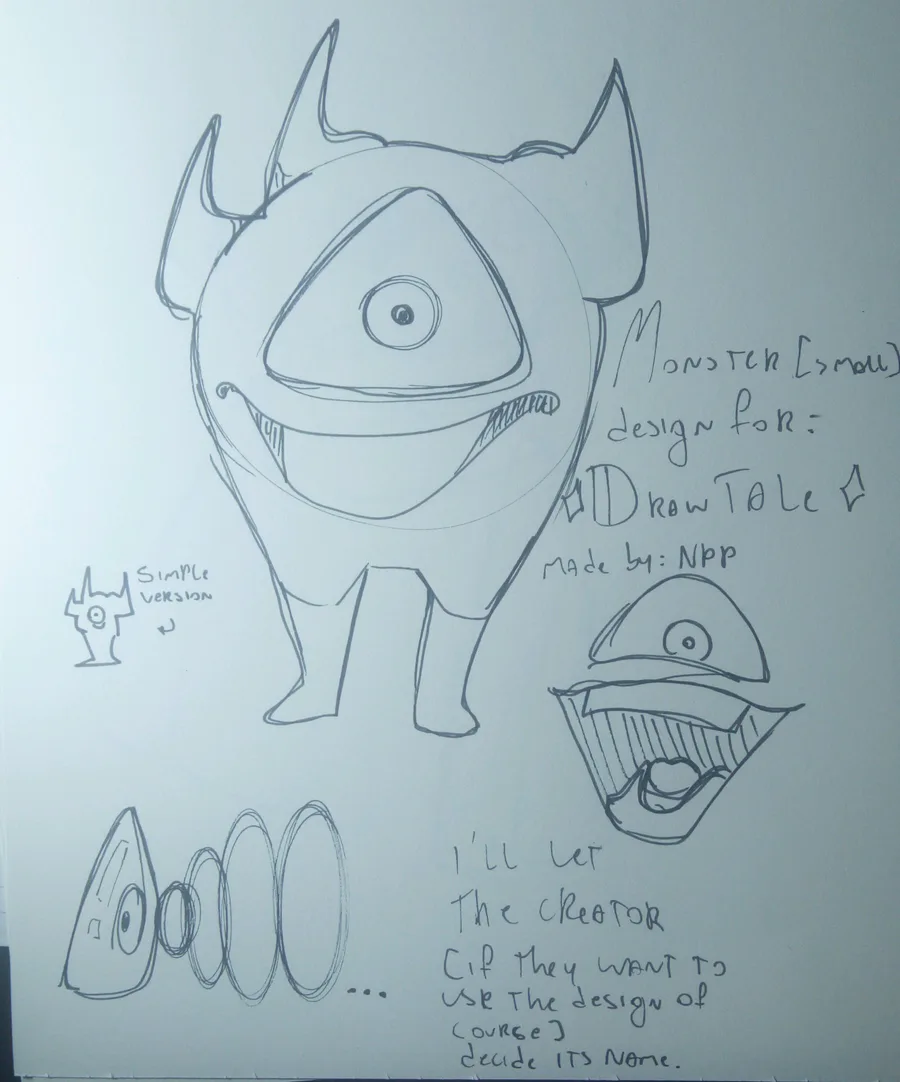 Monster [small]
design for:
DrawTale
made by: NPP
Simple
version
I'll let
the creator
(if they want to
use the design of
course]
decide its name.